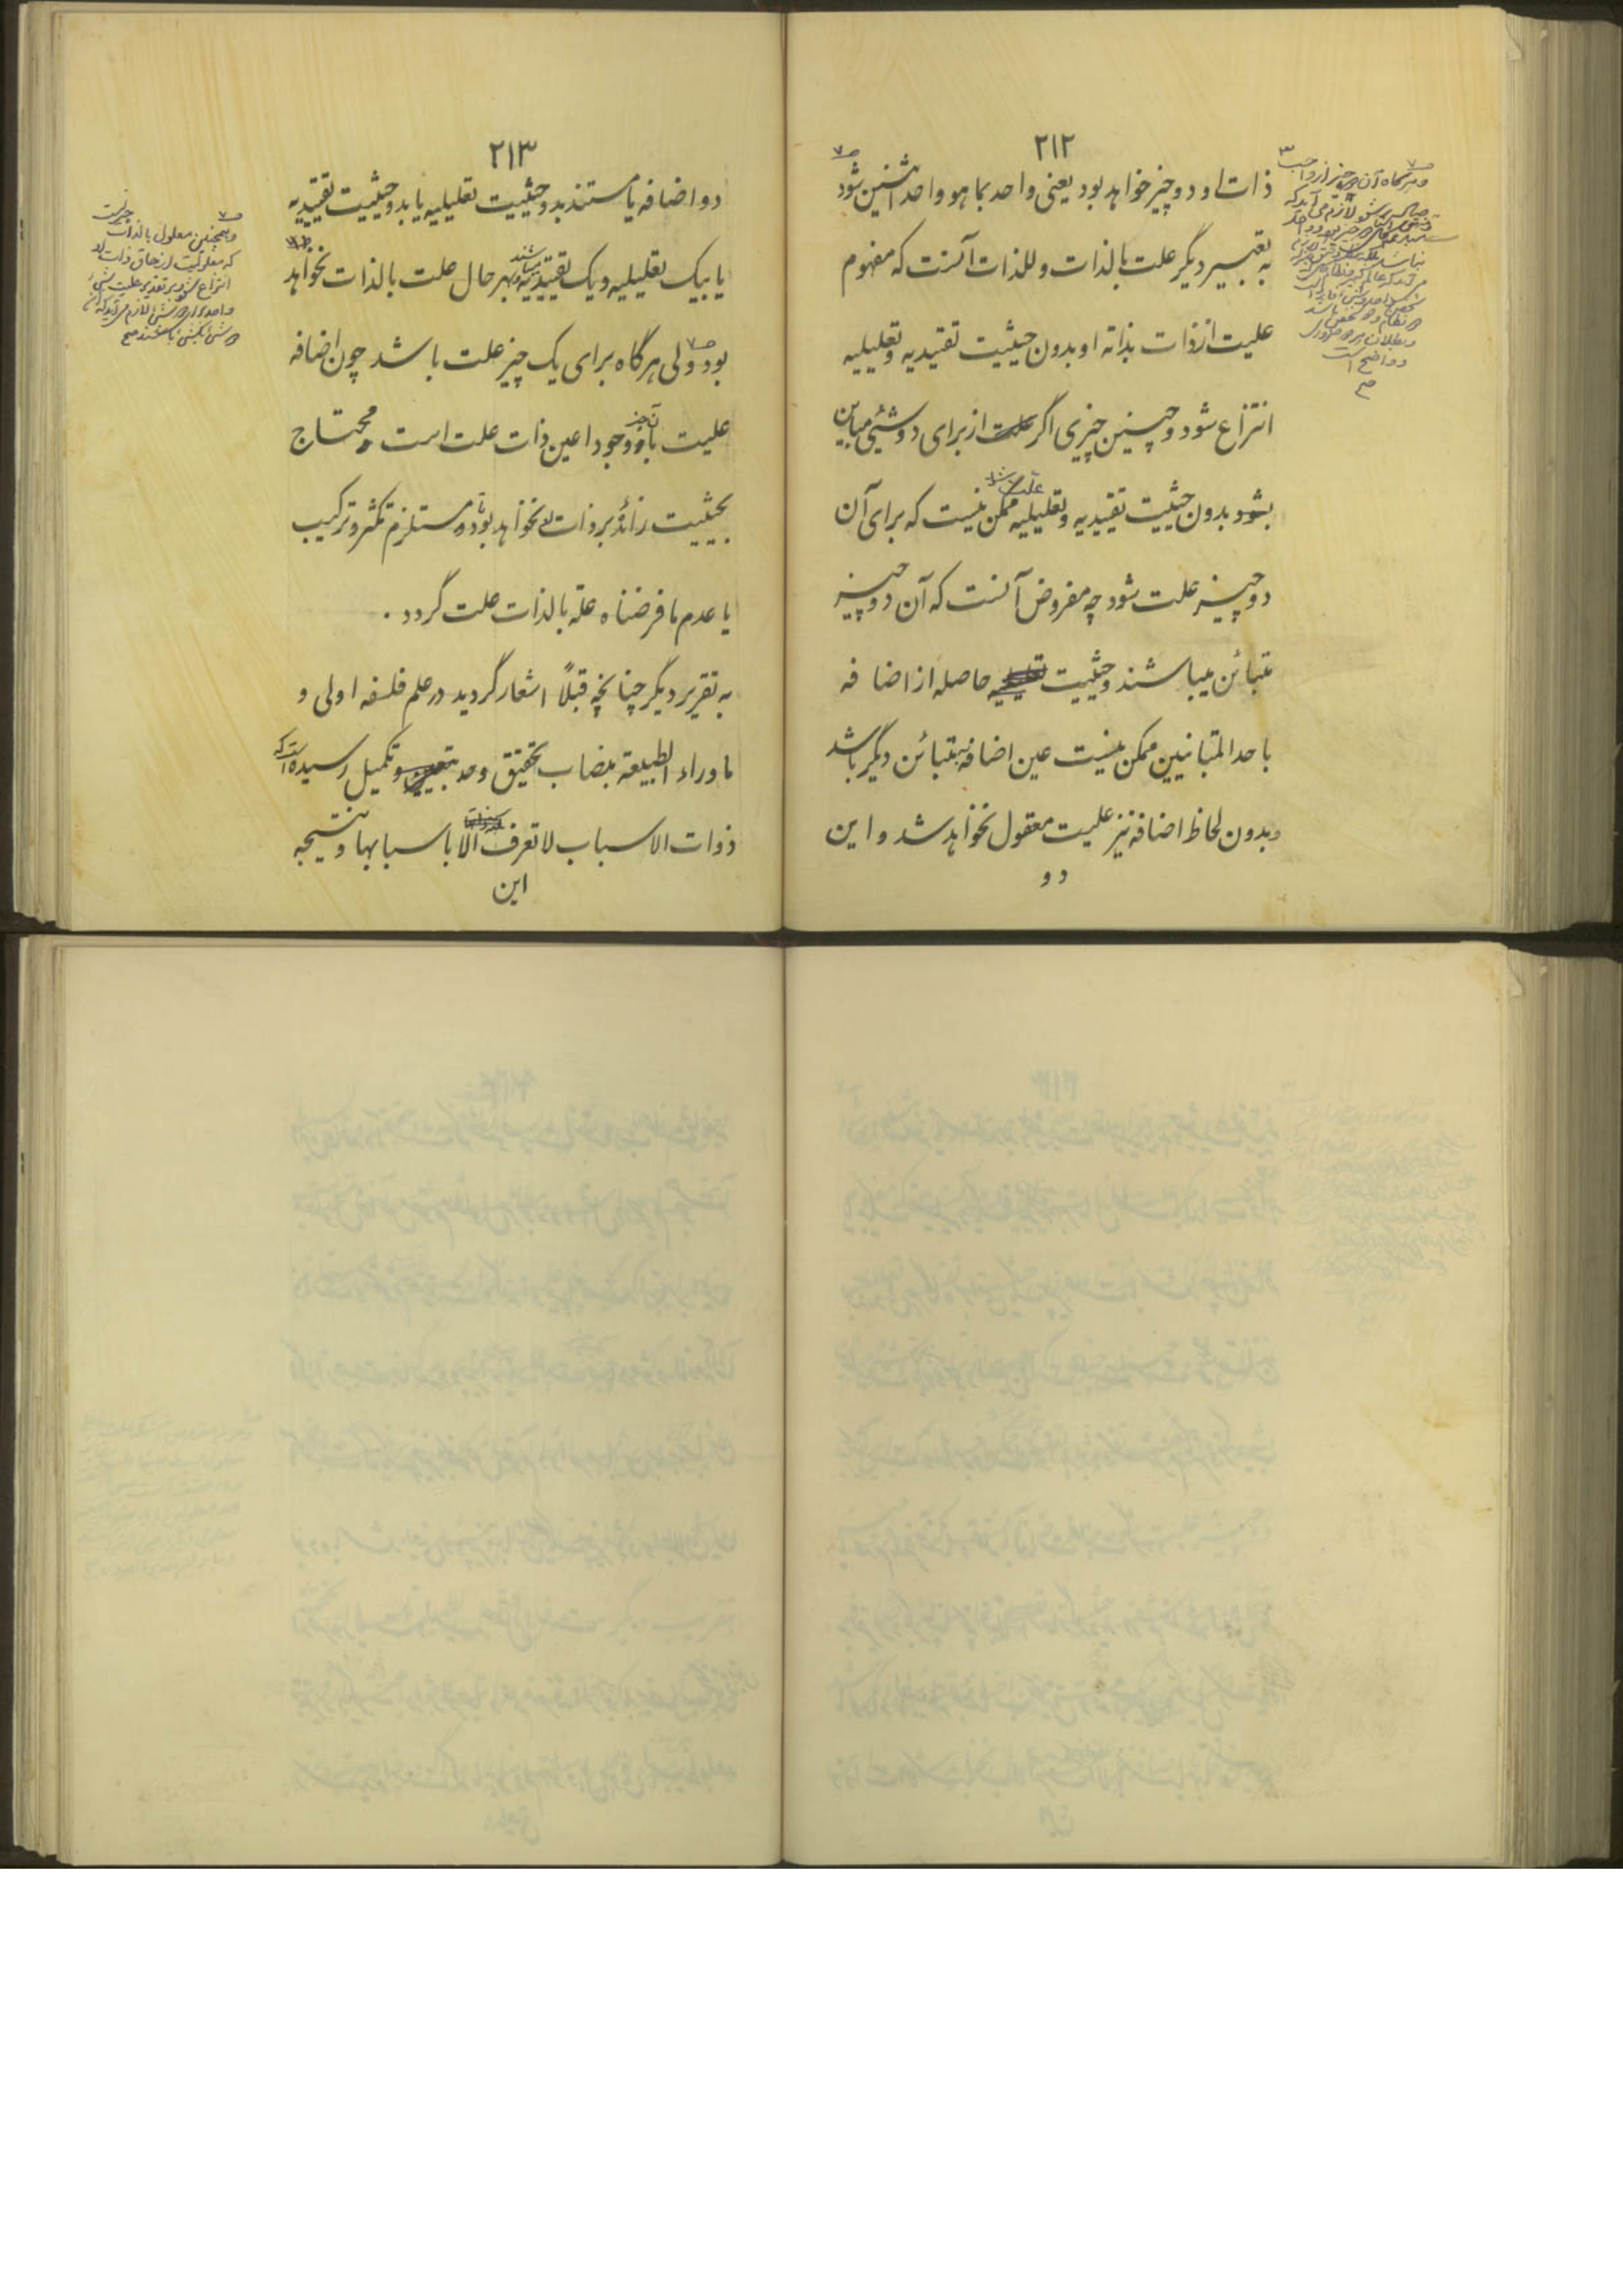 ۲۱۲
ذات او دو چیز خواهد بود یعنی واحد بما هو واحد اثنین شود
به تعبیر دیگر علت بالذات وللذات آنست که مفهوم
علیت از ذات بذاته او بدون حیثیت تقییدیه وتعلیلیه
انتزاع شود وچنین چیزی اگر علت از برای دو شیئی مباین
بشود بدون حیثیت تقییدیه وتعلیلیه ممکن نیست که برای آن
دو چیز علت شود چه مفروض آنست که آن دو چیز
متبائن میباشند وحیثیت حاصله از اضافه
باحد المتباینین ممکن نیست عین اضافه بمتبائن دیگر باشد
وبدون لحاظ اضافه نیز علیت معقول نخواهد شد و این
دو
وهرگاه آن دو چیز از
لازم می آید که
ودو واضح است
صح
۲۱۳
دو اضافه یا مستند بدو حیثیت تعلیلیه یا بدو حیثیت تقییدیه
یا بیک تعلیلیه ویک تقییدیه میباشند وبهر حال علت بالذات نخواهد
بود ولی هرگاه برای یک چیز علت باشد چون اضافه
علیت بآن چیز وجودا عین ذات علت است محتاج
بحیثیت زائده بر ذات نخواهد بود مستلزم تکثر وترکیب
یا عدم ما فرضناه علة بالذات علت گردد ۰
به تقریر دیگر چنانچه قبلاً اشعار گردید در علم فلسفه اولی و
ماوراء الطبیعة بنصاب تحقیق وحد وتکمیل رسیده است که
ذوات الاسباب لا تعرف الا باسبابها ونتیجه
این
وهمچنین معلول بالذات چیزیست
که معلولیت از حاق ذات او
انتزاع شود
صح